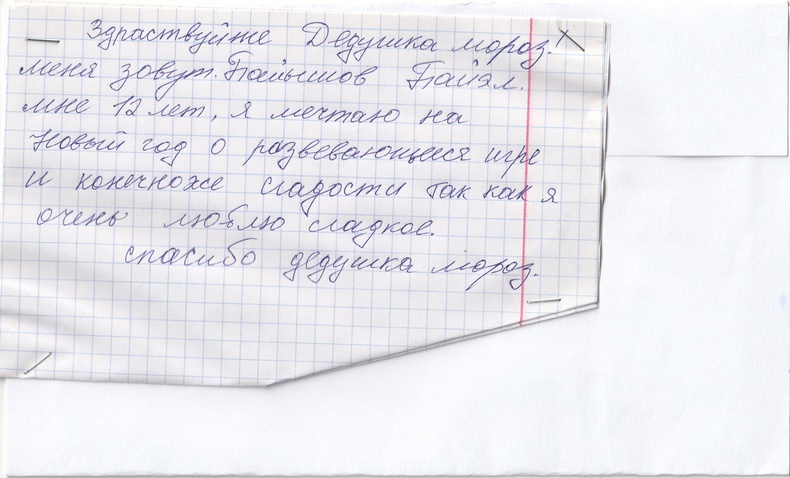 Здраствуйте Дедушка мороз!
меня зовут. Пайышов Пайэл.
мне 12 лет, я мечтаю на
Новый год о развевающиеся игре
и конечноже сладости так как я
очень люблю сладкое.
спасибо дедушка мороз.